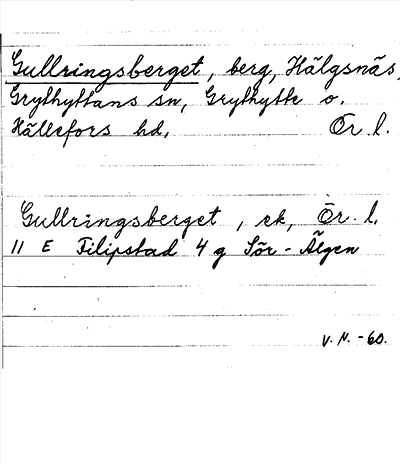 Gullringsberget, berg, Hälgsnäs,
Grythyttans sn, Grythytte o.
Hällefors hd, Ör l.
Gullringsberget, ek, Ör. l.
11 E Filipstad 4 g Sör-Älgen
V. N. -60.